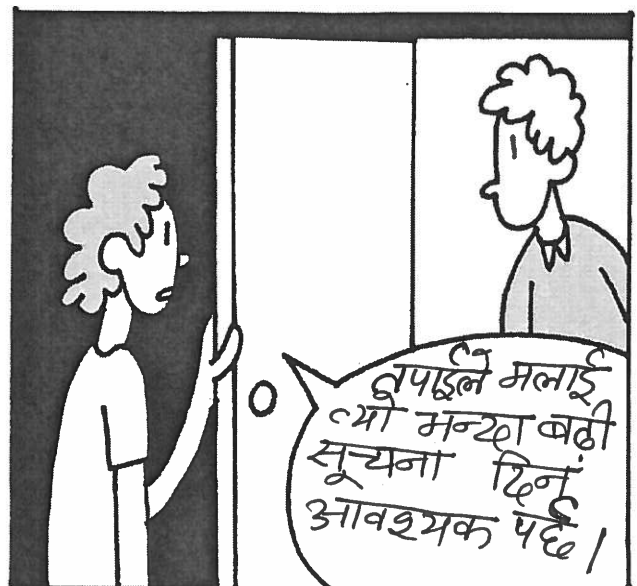 तपाईले मलाई
त्यो भन्दा बढी
सूचना दिनु
आवश्यक पर्छ।